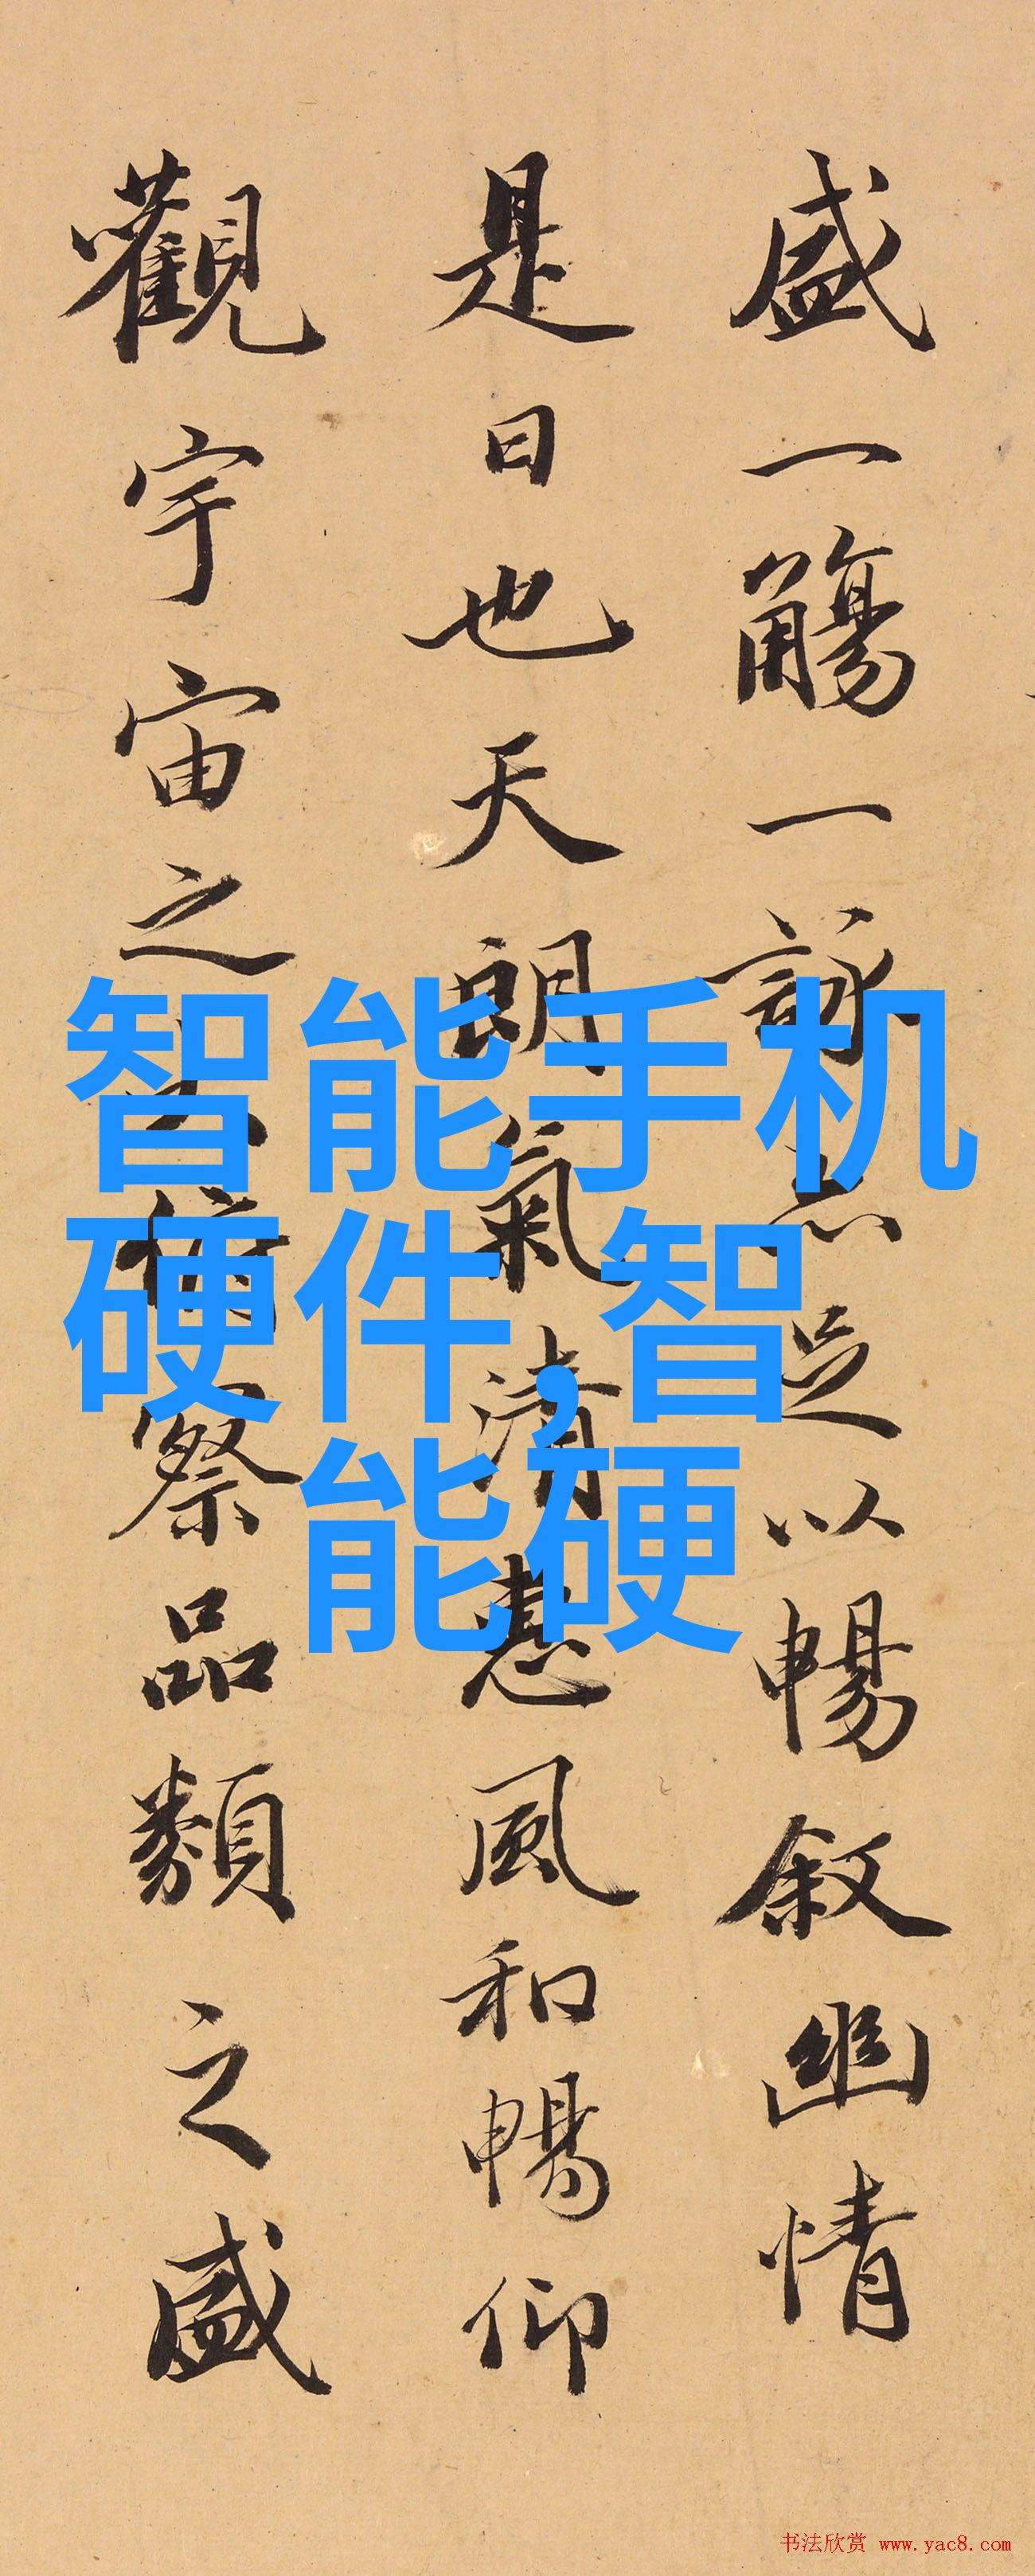 盛一觴一詠亦足以暢叙幽情
是日也天朗氣清惠風和暢仰
觀宇宙之大俯察品類之盛
智能手机
硬件,智
能硬
书法欣赏 www.yac8.com